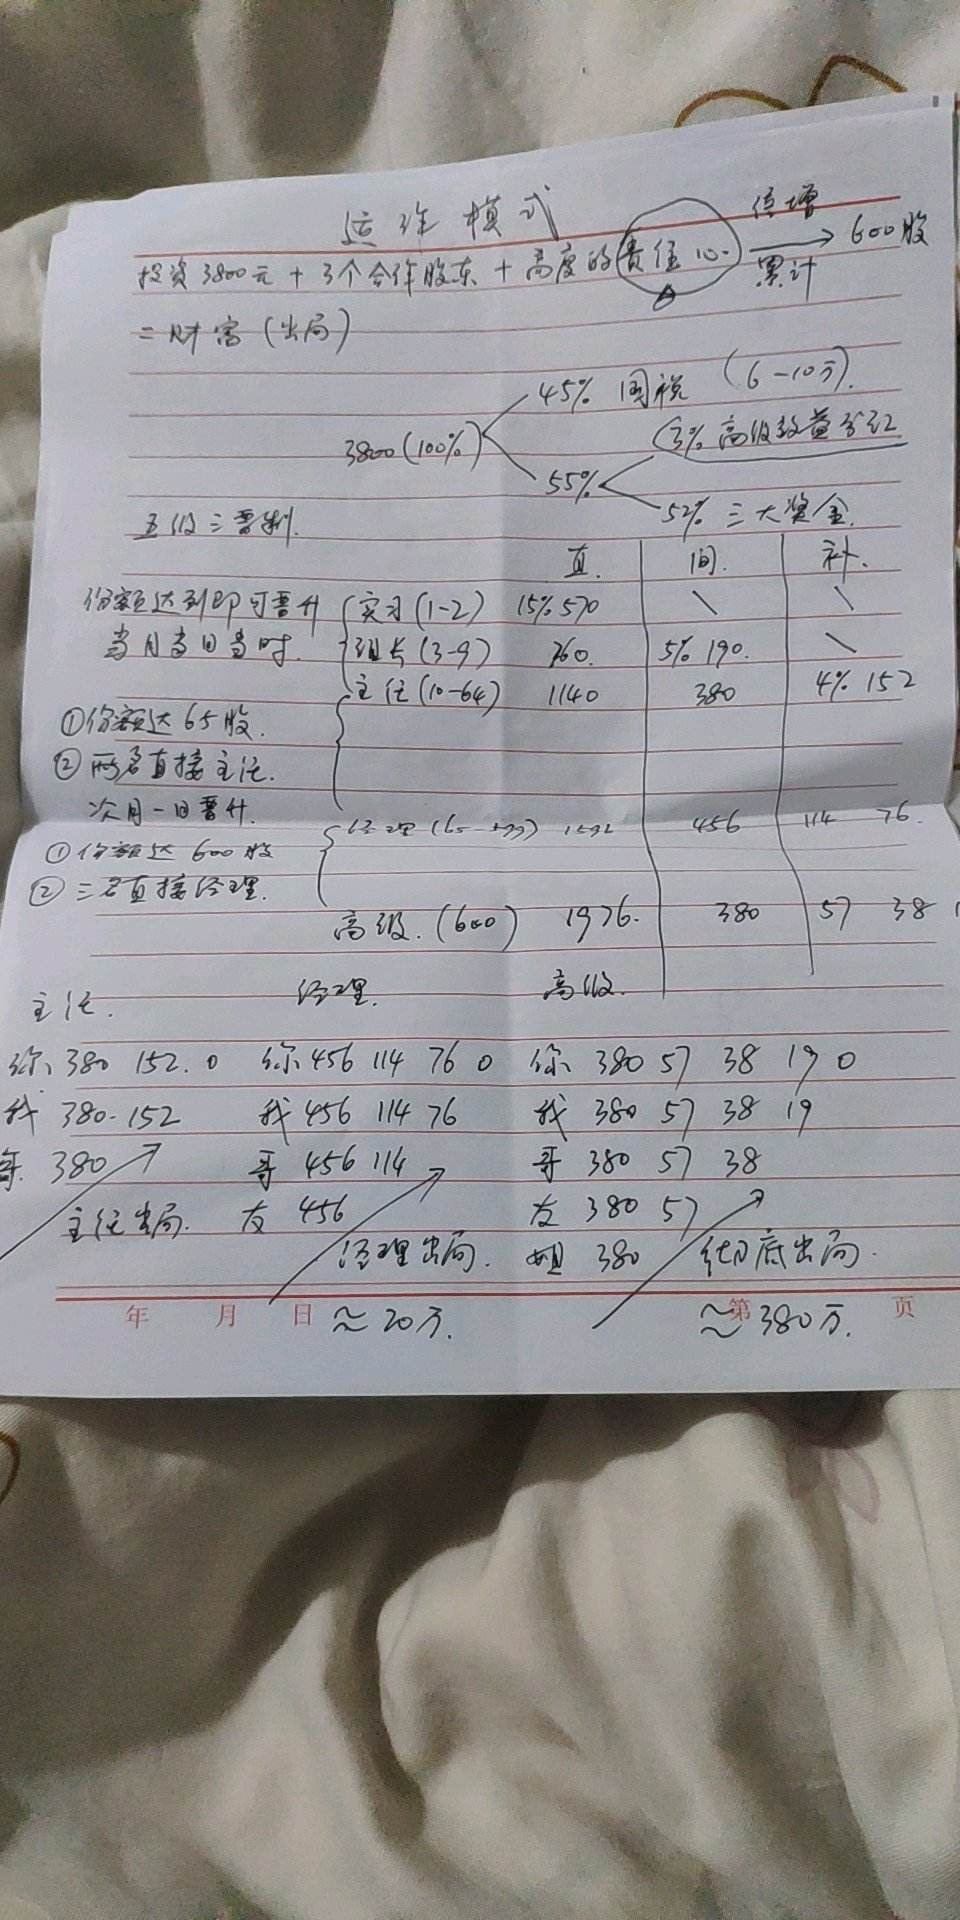 运作模式
投资3800元 + 3个合作股东 + 高度的责任心 倍增 累计 → 600股
= 财富(出局)
3800(100%)
45% 国税 (6-10万).
55%
3% 高级效益分红
52% 三大奖金.
五级三晋制.
直. 间. 补.
份额达到即可晋升
当月当日当时.
实习(1-2) 15% 570 \ \
组长(3-9) 760. 5% 190. \
主任(10-64) 1140 380 4% 152
①份额达65股.
②两名直接主任.
次月一日晋升.
经理(65-599) 1592 456 114 76.
①份额达600股
②三名直接经理.
高级.(600) 1976. 380 57 38
主任. 经理. 高级.
你 380 152. 0 你 456 114 76 0 你 380 57 38 19 0
我 380-152 我 456 114 76 我 380 57 38 19
哥 380 哥 456 114 哥 380 57 38
主任出局. 友 456 友 380 57
经理出局. 姐 380 彻底出局.
年 月 日 ≈20万. 第 页 ≈380万.